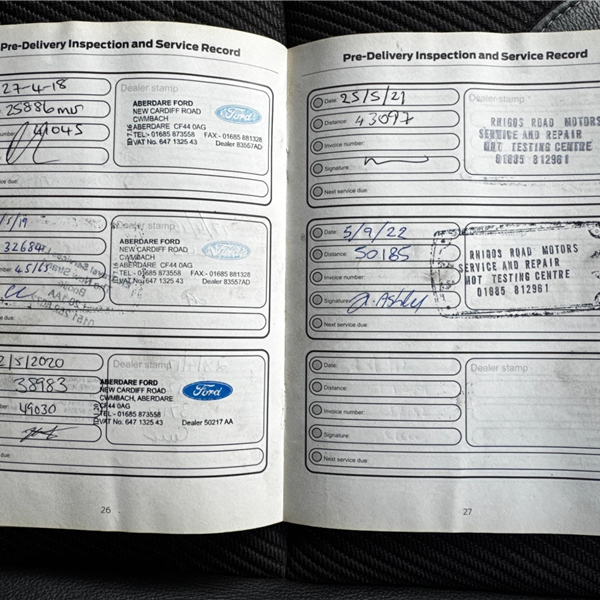 Pre-Delivery Inspection and Service Record
27-4-18
25886 mls
41045
Dealer stamp
ABERDARE FORD
NEW CARDIFF ROAD
CWMBACH
ABERDARE CF44 0AG
TEL - 01685 873558 FAX - 01685 881328
VAT No. 647 1325 43 Dealer 83557AD
Ford
due:
/5/19
32684
45165
Dealer stamp
ABERDARE FORD
NEW CARDIFF ROAD
CWMBACH
ABERDARE CF44 0AG
TEL - 01685 873558 FAX - 01685 881328
VAT No. 647 1325 43 Dealer 83557AD
Ford
due:
2/5/2020
38983
49030
Dealer stamp
ABERDARE FORD
NEW CARDIFF ROAD
CWMBACH, ABERDARE
CF44 0AG
TEL - 01685 873558
VAT No. 647 1325 43 Dealer 50217 AA
Ford
due:
26
Pre-Delivery Inspection and Service Record
Date: 25/5/21
Distance: 43097
Invoice number:
Signature:
Next service due:
Dealer stamp
RHIGOS ROAD MOTORS
SERVICE AND REPAIR
MOT TESTING CENTRE
01685 812961
Date: 5/9/22
Distance: 50185
Invoice number:
Signature: A. Ashley
Next service due:
RHIGOS ROAD MOTORS
SERVICE AND REPAIR
MOT TESTING CENTRE
01685 812961
Date:
Distance:
Invoice number:
Signature:
Next service due:
Dealer stamp
27